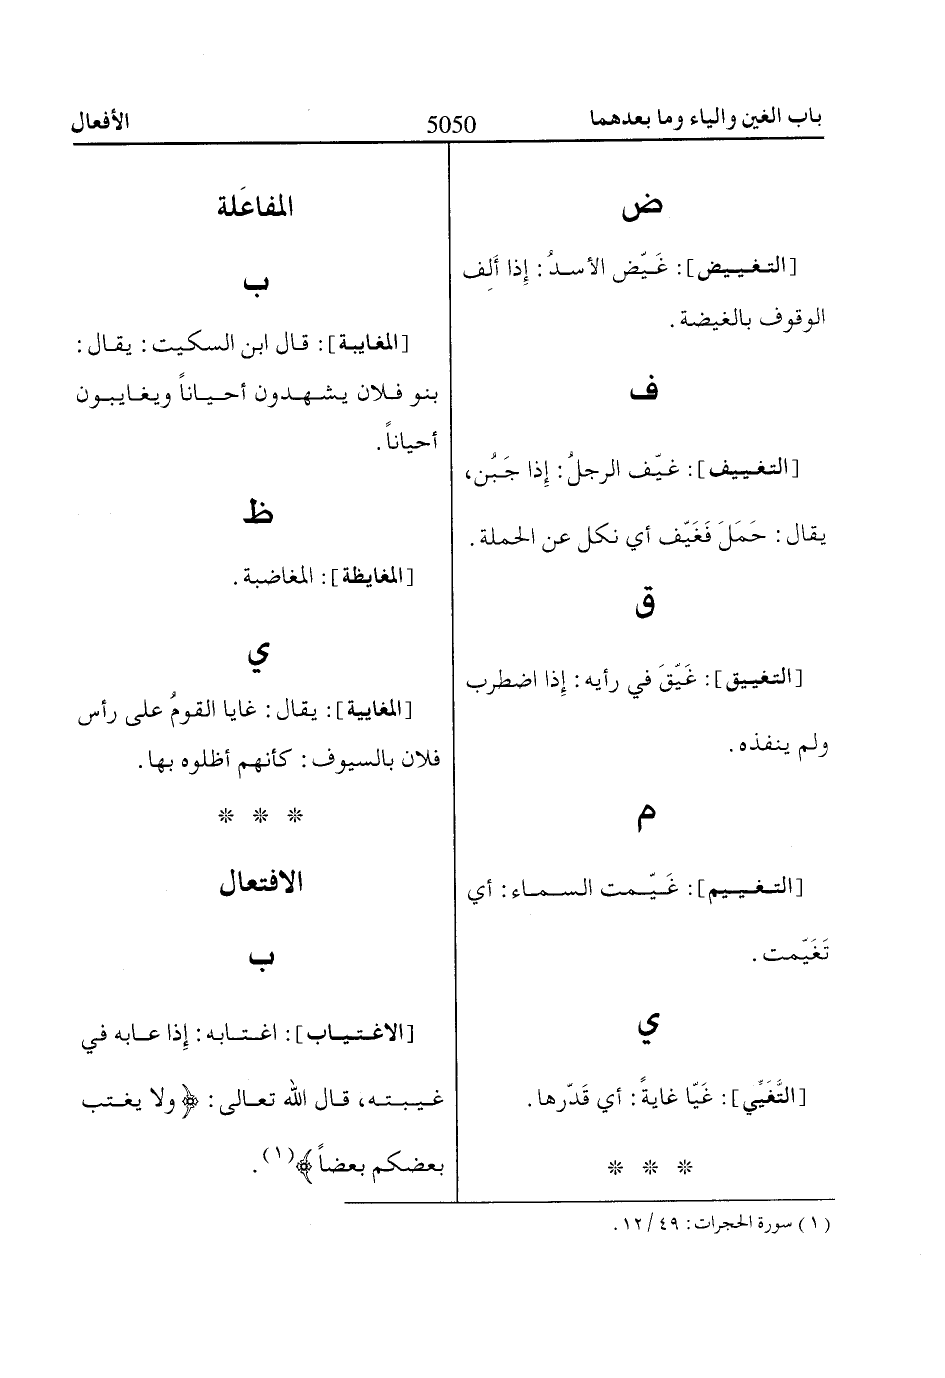 باب الغين والياء وما بعدهما
5050
الأفعال
ض
[التغييض]: غَيّض الأسدُ: إِذا ألِف
الوقوف بالغيضة.
ف
[التغييف]: غيّف الرجلُ: إِذا جَبُن،
يقال: حَمَلَ فَغَيّف أي نكل عن الحملة.
ق
[التغييق]: غَيّقَ في رأيه: إِذا اضطرب
ولم ينفذه.
م
[التغييم]: غَيّمت السماء: أي
تَغَيّمت.
ي
[التَّغَيِّي]: غَيّا غايةً: أي قَدّرها.
* * *
المفاعَلة
ب
[المغايبة]: قال ابن السكيت: يقال:
بنو فلان يشهدون أحياناً ويغايبون
أحياناً.
ظ
[المغايظة]: المغاضبة.
ي
[المغايية]: يقال: غايا القومُ على رأس
فلان بالسيوف: كأنهم أظلوه بها.
* * *
الافتعال
ب
[الاغتياب]: اغتابه: إِذا عابه في
غيبته، قال الله تعالى: ﴿ولا يغتب
بعضكم بعضاً﴾(١).
(١) سورة الحجرات: ٤٩/ ١٢.